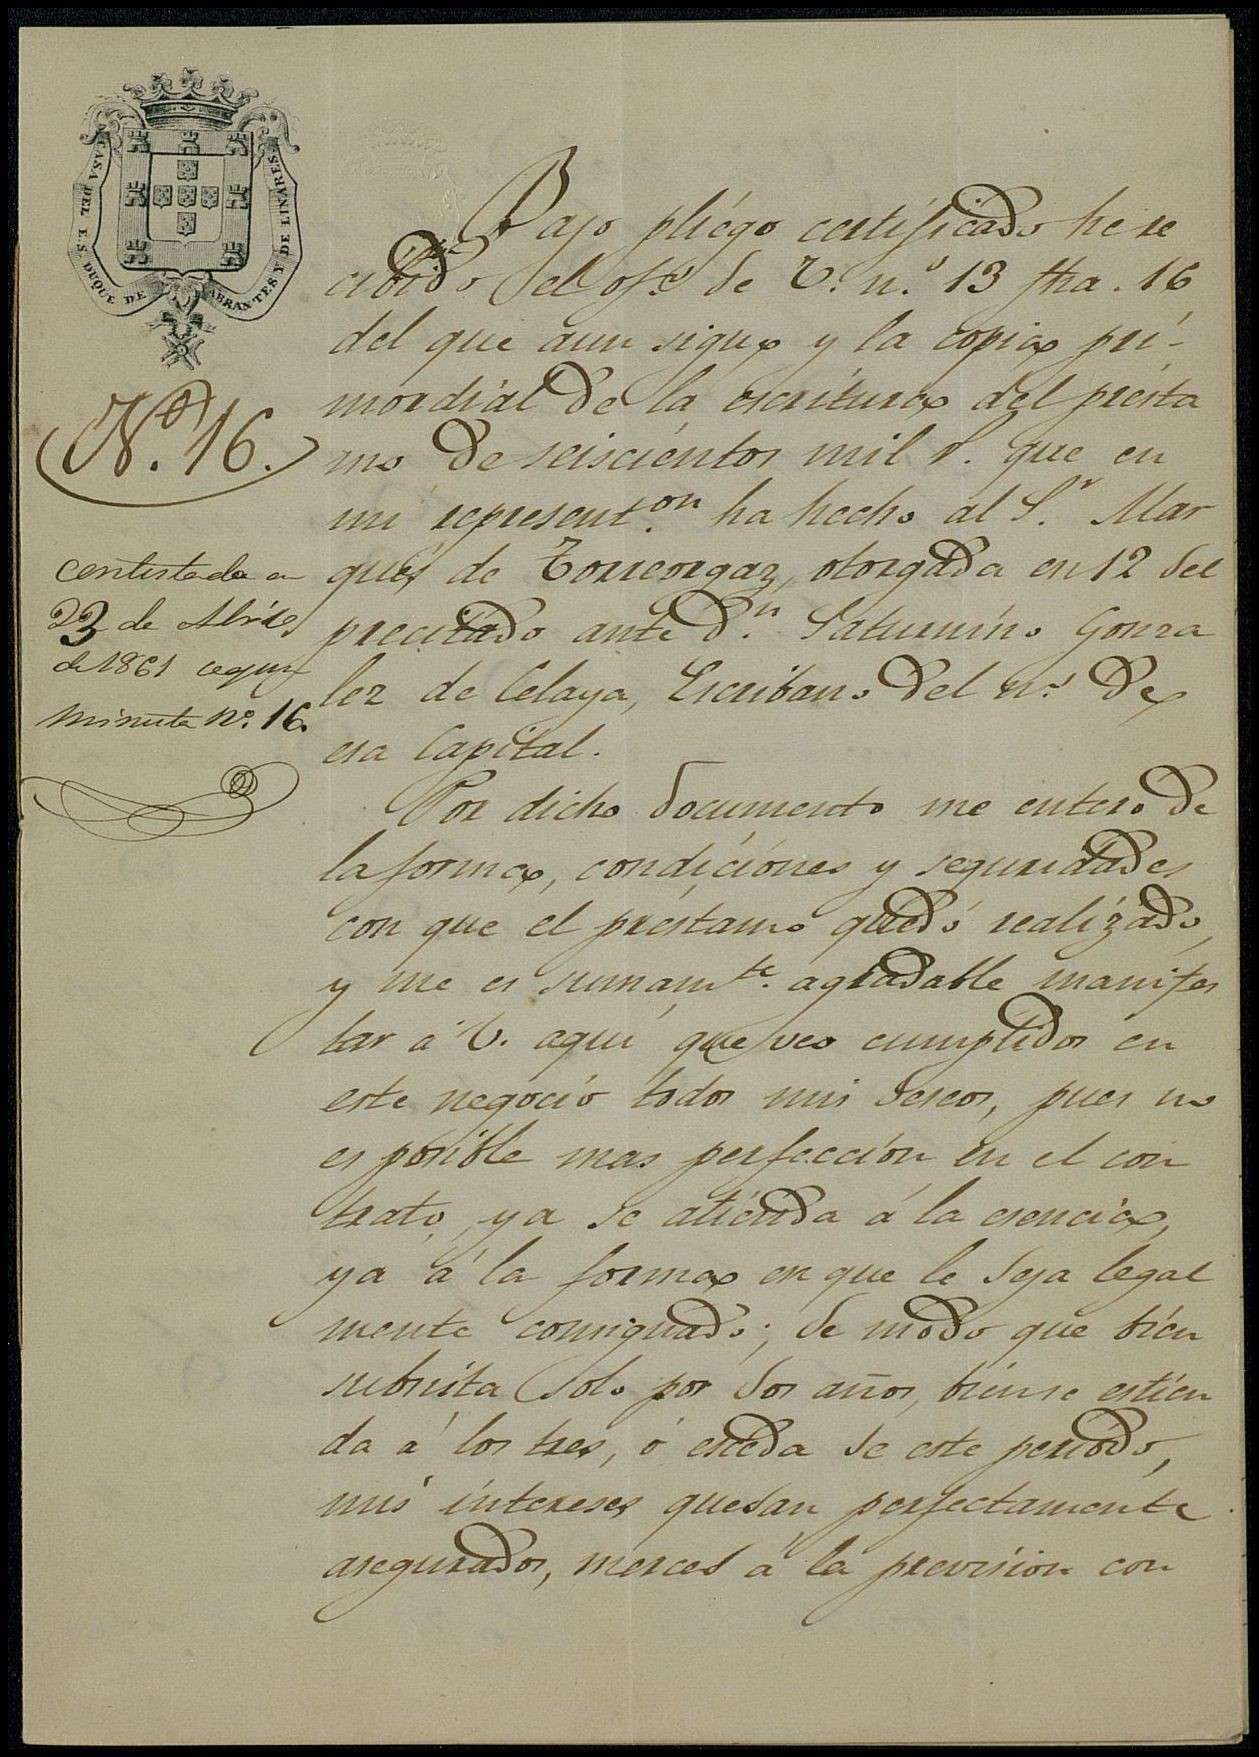 CASA DEL E.S. DUQUE DE ABRANTES Y DE LINARES
Nº. 16.
contestada en
23 de Abril
de 1861 segun
minuta Nº. 16.
Bajo pliégo certificado he re
cibido el ofº. de V. n.º 13 fha. 16
del que aun sigue y la copia pri-
mordial de la escritura del présta
mo de seiscientos mil r. que en
mi represent.on ha hecho al S.r Mar
qués de Torreorgaz, otorgada en 12 del
precitado ante D.n Saturnino Gonza
lez de Celaya, Escribano del n.º de
esa Capital.
Por dicho documento me entero de
la forma, condiciones y seguridades
con que el préstamo quedó realizado,
y me es sumam.te agradable manifes
tar á V. aqui que veo cumplidos en
este negocio todos mis deseos, pues no
es posible mas perfección en el con
trato, ya se atienda á la esencia,
ya á la forma en que le deja legal
mente consignado; de modo que bien
subsista solo por dos años, bien se estien
da á los tres, ó esceda de este periódo,
mis intereses quedan perfectamente
asegurados, merced á la prevision con